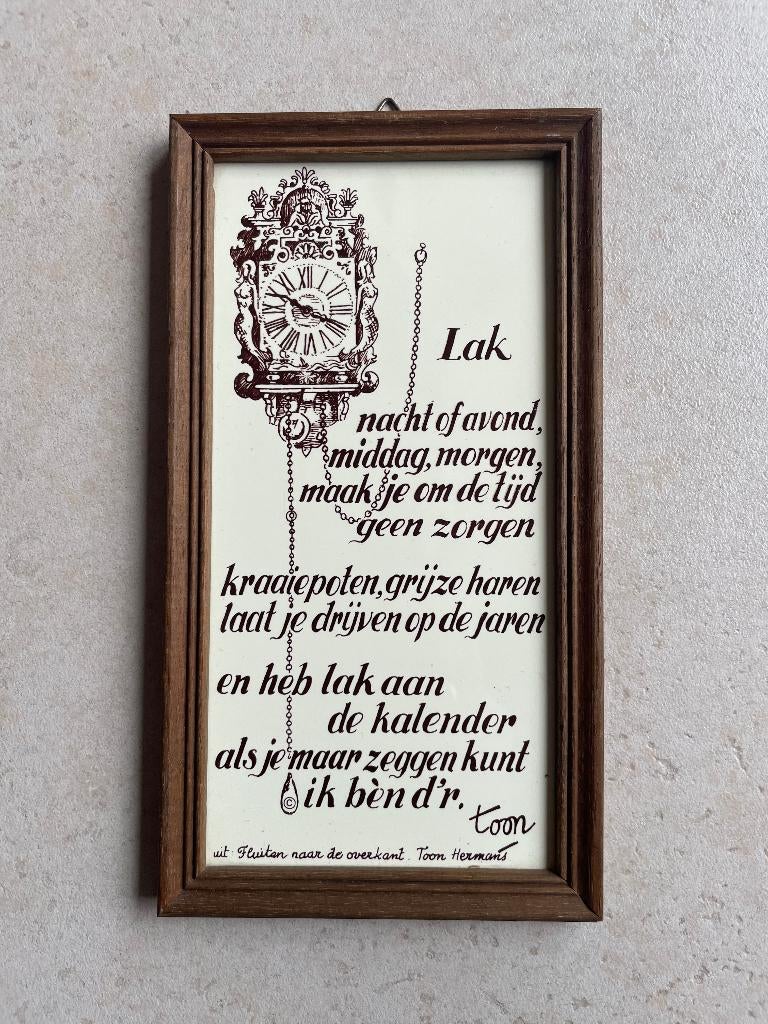 Lak
nacht of avond,
middag, morgen,
maak je om de tijd
geen zorgen
kraaiepoten, grijze haren
laat je drijven op de jaren
en heb lak aan
de kalender
als je maar zeggen kunt
ik bèn d'r.
toon
©
uit: Fluiten naar de overkant. Toon Hermans